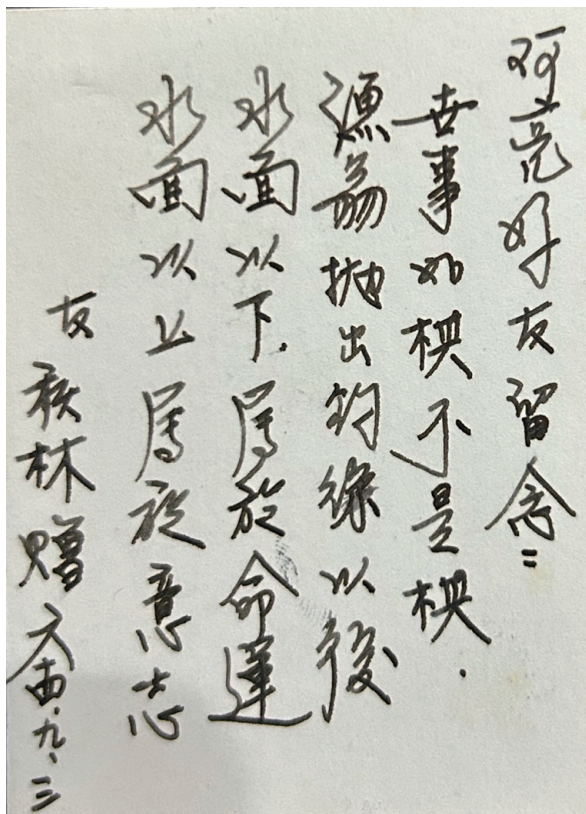 阿亮好友留念：
世事如棋不是棋.
漁翁拋出釣線以後
水面以下屬於命運
水面以上屬於意志
友林贈 九.三